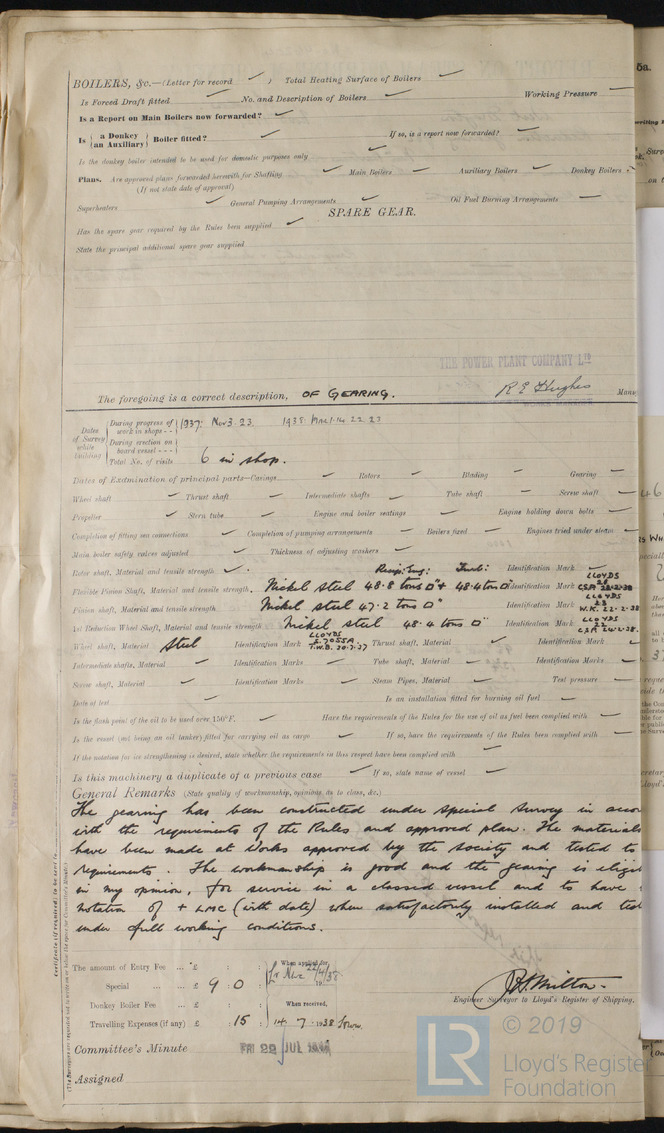 BOILERS, &c.—(Letter for record ✓ ) Total Heating Surface of Boilers ✓
Is Forced Draft fitted ✓ No. and Description of Boilers ✓ Working Pressure ✓
Is a Report on Main Boilers now forwarded? ✓
Is { a Donkey / an Auxiliary } Boiler fitted? ✓ If so, is a report now forwarded? ✓
Is the donkey boiler intended to be used for domestic purposes only ✓
Plans. Are approved plans forwarded herewith for Shafting ✓ Main Boilers ✓ Auxiliary Boilers ✓ Donkey Boilers ✓
(If not state date of approval)
Superheaters ✓ General Pumping Arrangements ✓ Oil Fuel Burning Arrangements ✓
SPARE GEAR.
Has the spare gear required by the Rules been supplied ✓
State the principal additional spare gear supplied
THE POWER PLANT COMPANY LTD
The foregoing is a correct description, OF GEARING. R E Hughes
Dates of Survey while building
During progress of work in shops - - 1937: Nov 3. 23. 1938:
During erection on board vessel - - -
Total No. of visits 6 in shop.
Dates of Examination of principal parts—Casings ✓ Rotors ✓ Blading ✓ Gearing ✓
Wheel shaft ✓ Thrust shaft ✓ Intermediate shafts ✓ Tube shaft ✓ Screw shaft ✓
Propeller ✓ Stern tube ✓ Engine and boiler seatings ✓ Engine holding down bolts ✓
Completion of fitting sea connections ✓ Completion of pumping arrangements ✓ Boilers fixed ✓ Engines tried under steam ✓
Main boiler safety valves adjusted ✓ Thickness of adjusting washers ✓
Recip: Eng: Turb:
Rotor shaft, Material and tensile strength ✓ Identification Mark ✓
Flexible Pinion Shaft, Material and tensile strength. Nickel steel 48.8 tons □" + 48.4 tons □" Identification Mark LLOYDS
Pinion shaft, Material and tensile strength Nickel steel 47.2 tons □" Identification Mark LLOYDS W.K. 22-2-38
1st Reduction Wheel Shaft, Material and tensile strength Nickel steel 48.4 tons □" Identification Mark LLOYDS
Wheel shaft, Material Steel Identification Mark LLOYDS T.W.B. Thrust shaft, Material ✓ Identification Mark ✓
Intermediate shafts, Material ✓ Identification Marks ✓ Tube shaft, Material ✓ Identification Marks ✓
Screw shaft, Material ✓ Identification Marks ✓ Steam Pipes, Material ✓ Test pressure ✓
Date of test ✓ Is an installation fitted for burning oil fuel ✓
Is the flash point of the oil to be used over 150°F. ✓ Have the requirements of the Rules for the use of oil as fuel been complied with ✓
Is the vessel (not being an oil tanker) fitted for carrying oil as cargo ✓ If so, have the requirements of the Rules been complied with ✓
If the notation for ice strengthening is desired, state whether the requirements in this respect have been complied with ✓
Is this machinery a duplicate of a previous case ✓ If so, state name of vessel ✓
General Remarks (State quality of workmanship, opinions as to class, &c.)
The gearing has been constructed under special survey in
with the requirements of the Rules and approved plan. The materials
have been made at Works approved by the Society and tested to
requirements. The workmanship is good and the gearing is
in my opinion, for service in a classed vessel and to have
notation of + LMC (with date) when satisfactorily installed and
under full working conditions.
The amount of Entry Fee ... £ : : When applied for,
Special ... ... £ 9 : 0 :
Donkey Boiler Fee ... £ : : When received,
Travelling Expenses (if any) £ : 15 : 14.7.1938
Engineer Surveyor to Lloyd's Register of Shipping.
Committee's Minute FRI 29 JUL
Assigned
LR © 2019
Lloyd's Register
Foundation